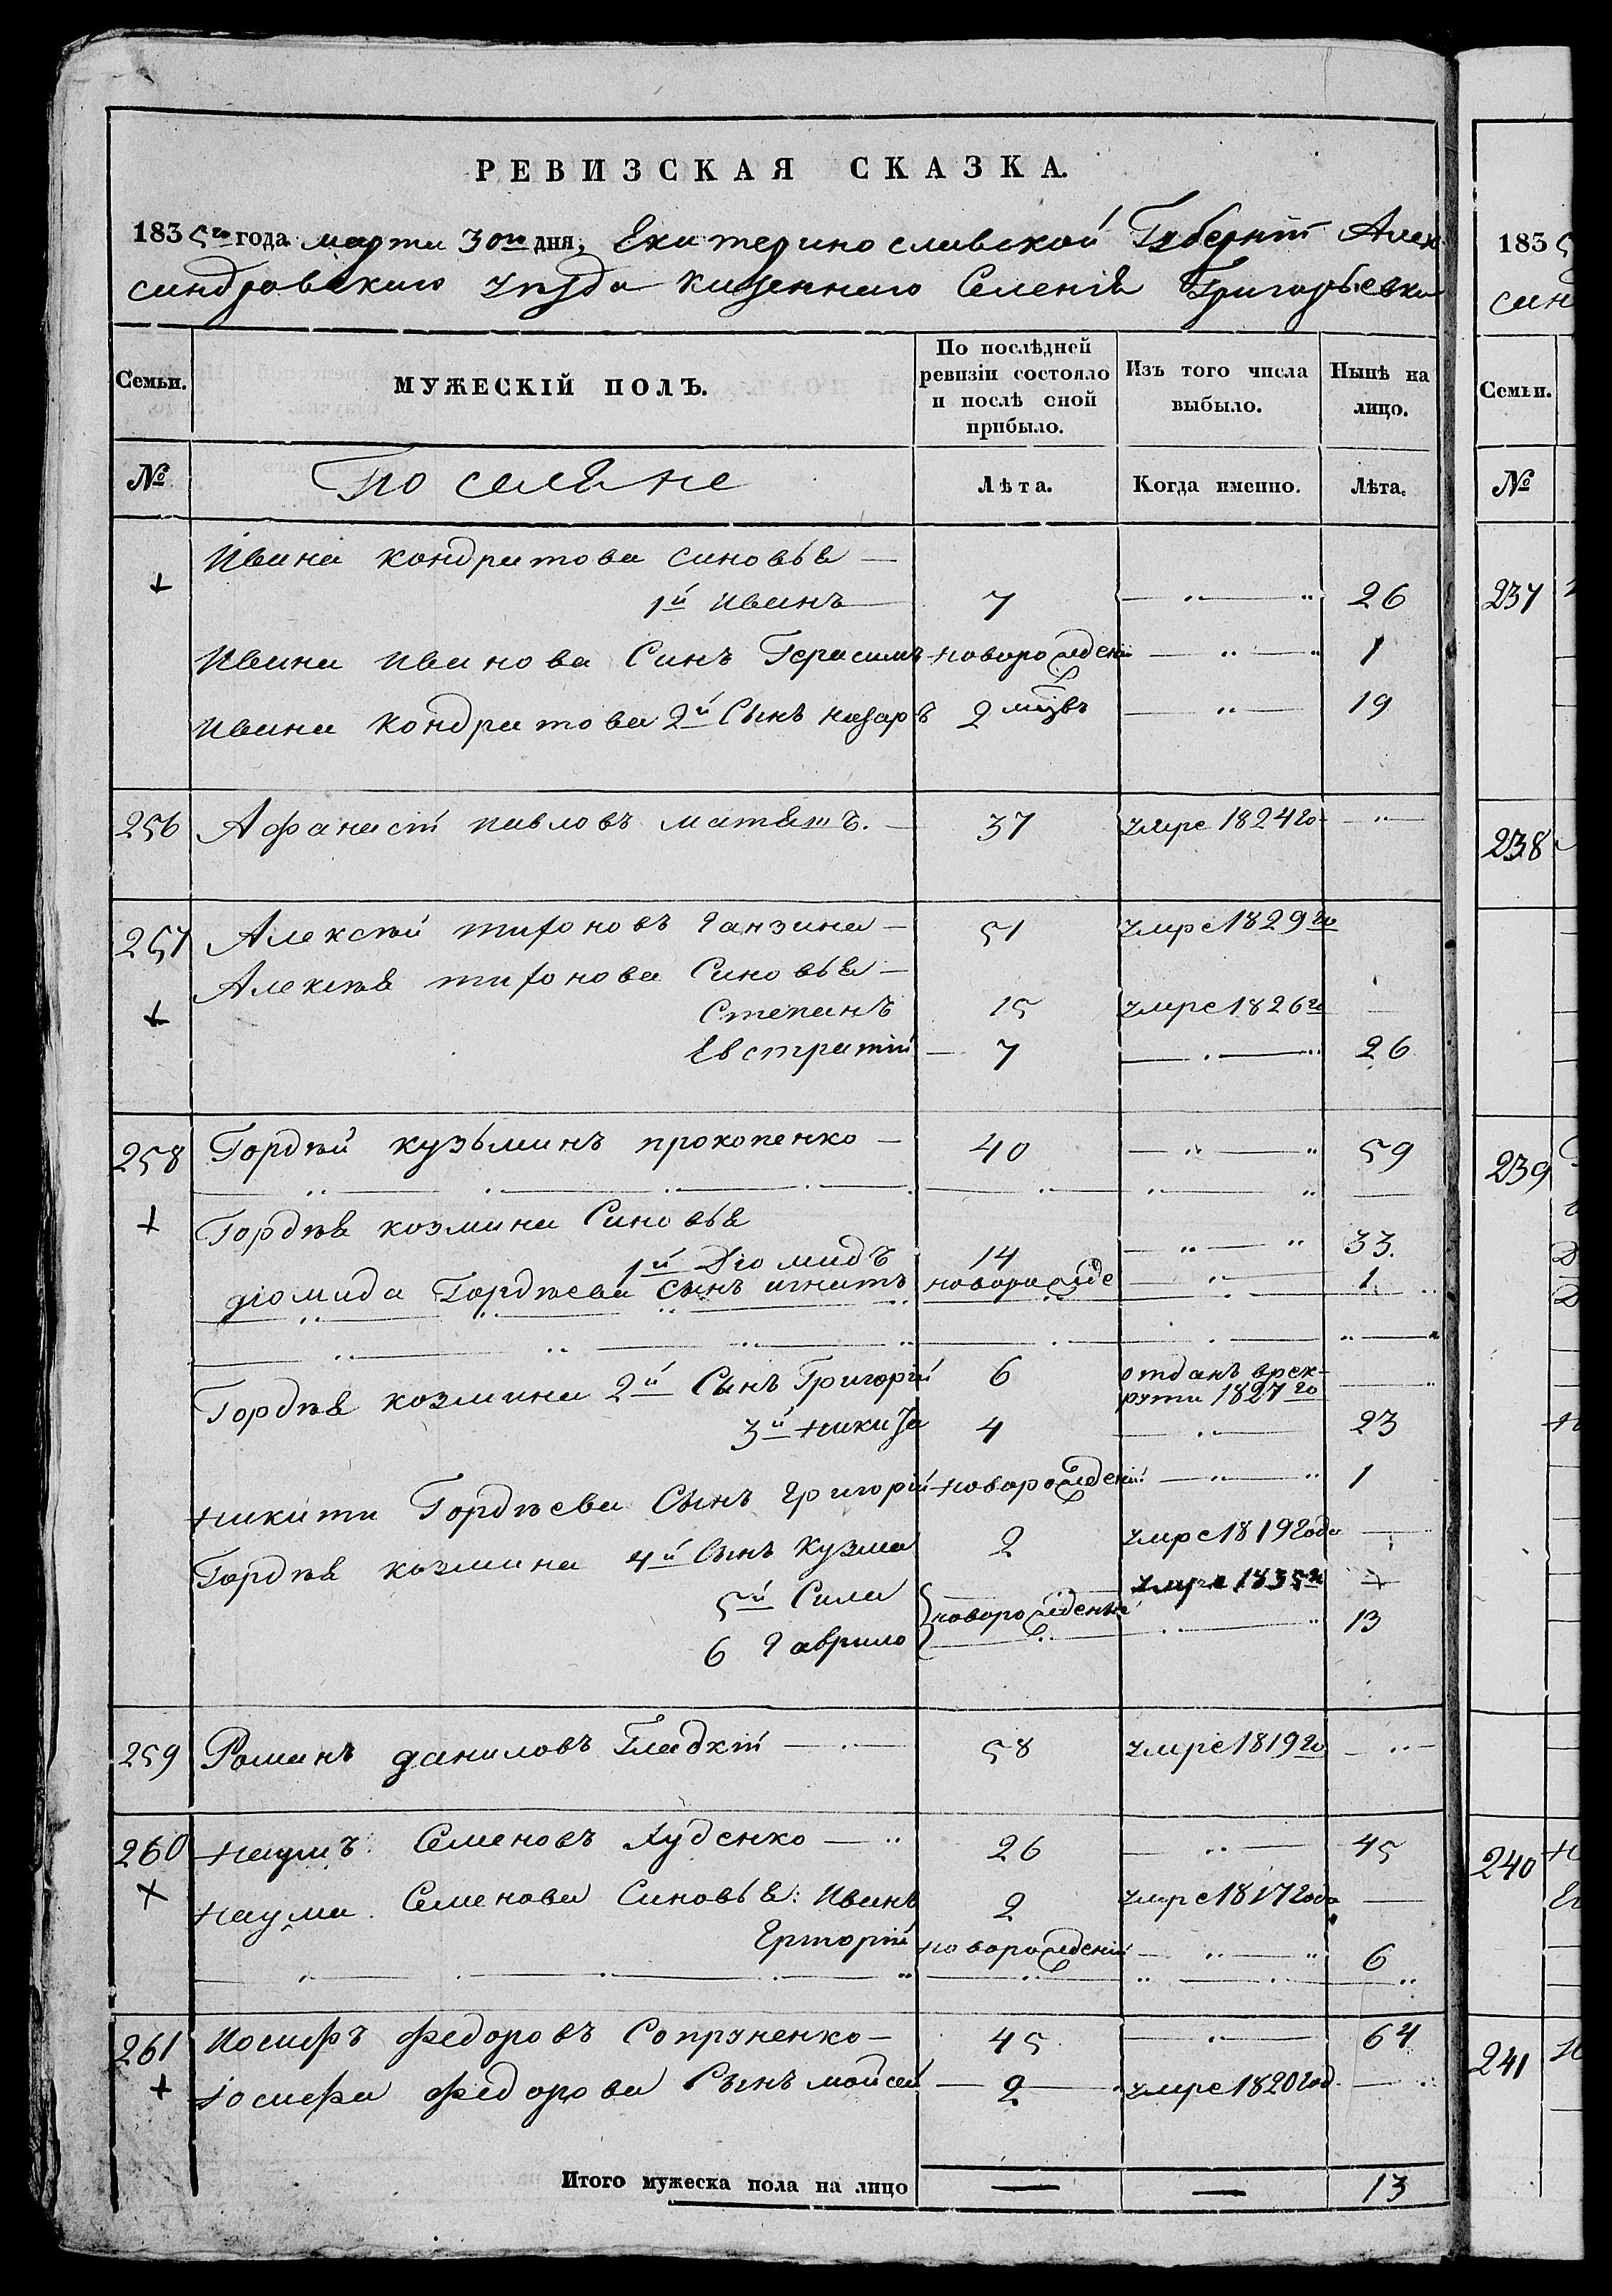 РЕВИЗСКАЯ СКАЗКА.
1835го года марта 30го дня, Екатеринославской Губерніи Алек
сандровскаго уѣзда казеннаго Селенія Григорьевки
Семьи. МУЖЕСКІЙ ПОЛЪ. По послѣдней ревизіи состояло и послѣ сной прибыло. Изъ того числа выбыло. Нынѣ на лицо.
№ Поселяне Лѣта. Когда именно. Лѣта.
Ивана кондратова синовья —
+ 1й иванъ — 7 — „ — „ 26
Ивана иванова Синъ Герасимъ новорожден — „ — „ 1
Ивана кондратова 2й Сынъ назаръ 2 мцвъ — „ — 19
256 Афанасій павловъ матяшъ. — 37 умре 1824го — „ —
257 Алексѣй тифоновъ ганзина — 51 умре 1829го
Алексѣя тифонова Синовья —
+ Степанъ 15 умре 1826го —
Евстратій — 7 — „ — „ 26
258 Гордѣй кузьминъ прокопенко — 40 — „ — „ 59
+ Гордѣя козмина Синовья
1й Діомидъ 14 — „ — „ 33.
діомида Гордѣева сынъ игнатъ новорожде — „ — 1
Гордѣя козмина 2й Сынъ Григорій 6 отданъ врек-
рути 1827го — „
3й никита 4 — „ — 23
никити Гордѣева Сынъ григорій новорожденій — „ — „ 1
Гордѣя козмина 4й Сынъ Кузма 2 умре 1819года —
5й Сила } новорожденые умре 1835го +
6 гаврило — „ 13
259 Романъ даниловъ Гладкій — „ — 58 умре 1819го — „ —
260 наумъ Семеновъ Худенко — „ 26 — „ — 45
+ наума Семенова Синовья: Иванъ 2 умре 1817года —
новорожденій — „ — „ 6
261 Иосифъ федоровъ Сопруненко — 45 — „ — 64
+ іосифа федорова Сынъ мойсей — 2 — умре 1820год — „
Итого мужеска пола на лицо — — 13
183
сан
Семьи.
№
237
238
239
240
241